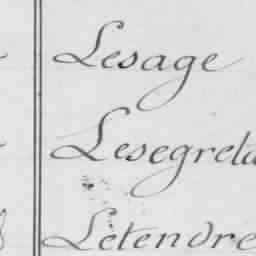 Lesage
Lesegreta
Letendre